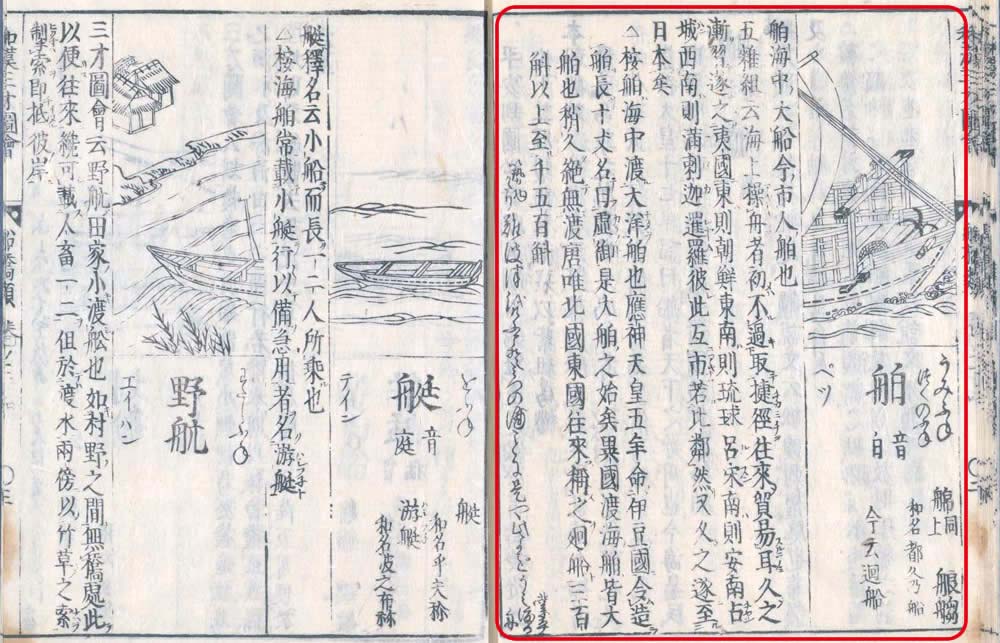 舶 音白
うみふね
つくのふね
ペツ
舶上同
和名都久乃船
今云廻船
舶海中大船今市人舶也
五雜組云海上操舟者初不過取捷徑往來貿易耳久之
漸習遂之東國東則朝鮮東南則琉球呂宋南則安南占
城西南則滿剌迦暹羅彼此互市若比鄰然又久之遂至
日本矣
△按舶海中渡大洋舶也應神天皇五年命伊豆國令造
舶長十丈名曰虛御是大舶之始矣異國渡海舶皆大
舶也稍久絕無渡唐唯北國東國往來稱之廻船三百
斛以上至千五百斛
艇 音庭
をぶね
テイン
艇
和名乎夫祢
游艇
和名波之布祢
艇釋名云小船而長一二人所乘也
△按海舶常載小艇行以備急用者名游艇
野航
わたしぶね
エイハン
三才圖會云野航田家小渡舩也如村野之間無橋處此
以便往來纔可載人畜一二但於渡水兩傍以竹草之索
掣索即抵彼岸
和漢三才圖會
船橋類